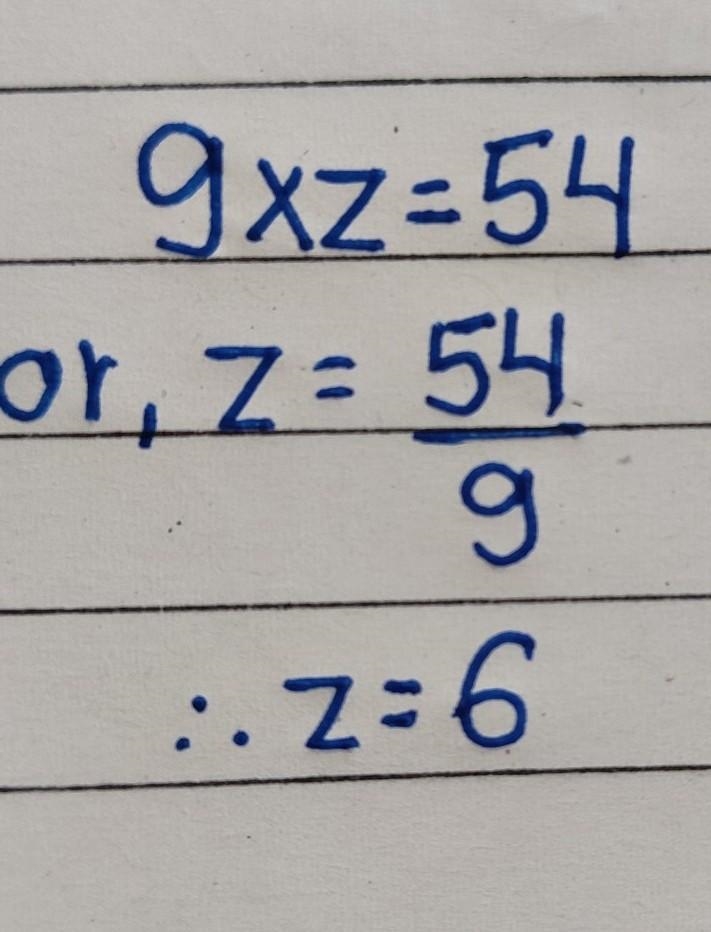 9xz=54
or, z = 54/9
∴ z=6